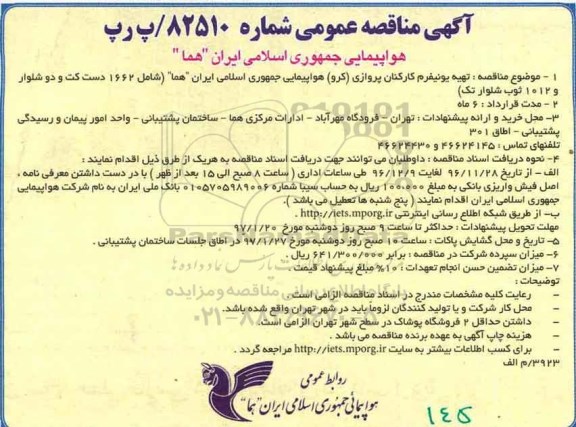 آگهی مناقصه عمومی شماره ۸۲۵۱۰/پ رپ
هواپیمایی جمهوری اسلامی ایران "هما"
۱ - موضوع مناقصه : تهیه یونیفرم کارکنان پروازی (کرو) هواپیمایی جمهوری اسلامی ایران "هما" (شامل ۱۶۶۲ دست کت و دو شلوار
و ۱۰۱۲ ثوب شلوار تک)
۲ - مدت قرارداد : ۶ ماه
۳- محل خرید و ارائه پیشنهادات : تهران - فرودگاه مهرآباد - ادارات مرکزی هما - ساختمان پشتیبانی - واحد امور پیمان و رسیدگی
پشتیبانی - اطاق ۳۰۱
تلفنهای تماس : ۴۶۶۲۴۱۴۵ و ۴۶۶۲۴۴۳۰
۴- نحوه دریافت اسناد مناقصه : داوطلبان می توانند جهت دریافت اسناد مناقصه به هریک از طرق ذیل اقدام نمایند :
الف - از تاریخ ۹۶/۱۱/۲۸ لغایت ۹۶/۱۲/۹ طی ساعات اداری ( ساعت ۸ صبح الی ۱۵ بعد از ظهر ) با در دست داشتن معرفی نامه ،
اصل فیش واریزی بانکی به مبلغ ۱۰۰.۰۰۰ ریال به حساب سیبا شماره ۰۱۰۵۷۰۵۹۸۹۰۰۶ بانک ملی ایران به نام شرکت هواپیمایی
جمهوری اسلامی ایران اقدام نمایند ( پنج شنبه ها تعطیل می باشد ).
ب- از طریق شبکه اطلاع رسانی اینترنتی http://iets.mporg.ir .
مهلت تحویل پیشنهادات : حداکثر تا ساعت ۹ صبح روز دوشنبه مورخ ۹۷/۱/۲۰
۵- تاریخ و محل گشایش پاکات : ساعت ۱۰ صبح روز دوشنبه مورخ ۹۷/۱/۲۷ در اطاق جلسات ساختمان پشتیبانی .
۶- میزان سپرده شرکت در مناقصه : برابر ۶۴۱/۳۰۰/۰۰۰ ریال .
۷- میزان تضمین حسن انجام تعهدات : ۱۰% مبلغ پیشنهاد قیمت
توضیحات :
- رعایت کلیه مشخصات مندرج در اسناد مناقصه الزامی است .
- محل کار شرکت و یا تولید کنندگان لزوماً باید در شهر تهران واقع شده باشد.
- داشتن حداقل ۲ فروشگاه پوشاک در سطح شهر تهران الزامی است.
- هزینه چاپ آگهی به عهده برنده مناقصه می باشد .
- برای کسب اطلاعات بیشتر به سایت http://iets.mporg.ir مراجعه گردد .
۳۹۲۳/م الف
روابط عمومی
هواپیمائی جمهوری اسلامی ایران "هما"
۱۴۵